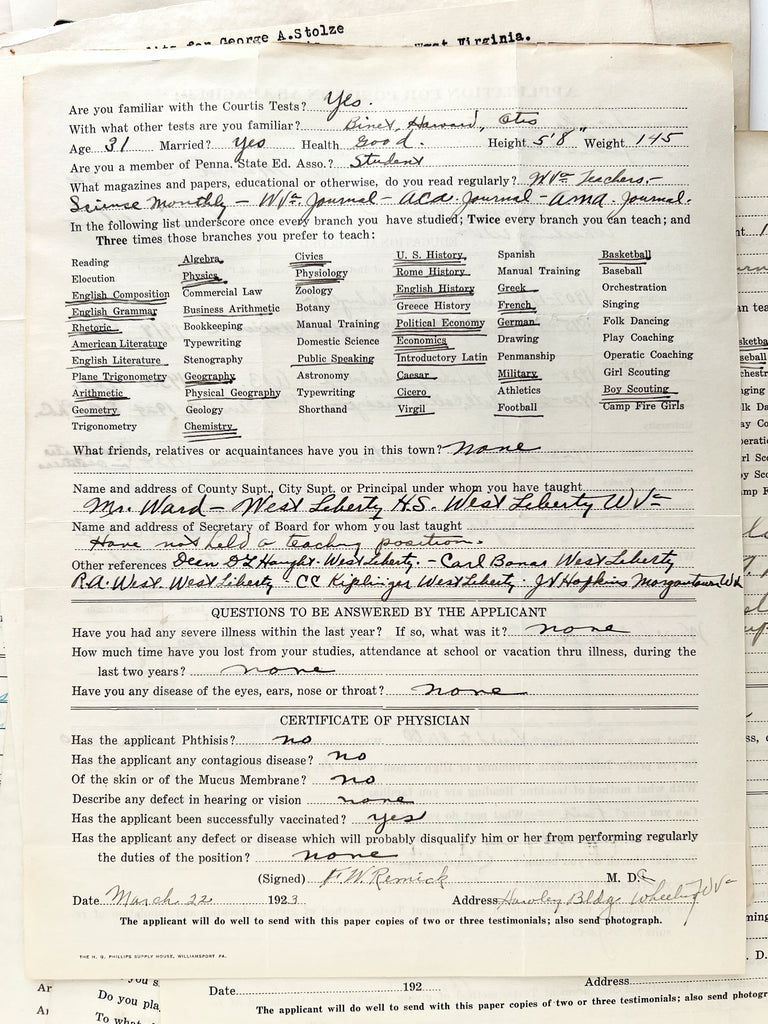 for George A.Stolze
West Virginia.
Are you familiar with the Courtis Tests? Yes.
With what other tests are you familiar? Binet, Harvard, Otis
Age 31 Married? Yes Health Good. Height 5'8" Weight 145
Are you a member of Penna. State Ed. Asso.? Student
What magazines and papers, educational or otherwise, do you read regularly? W Va Teachers.-
Science Monthly - W Va Journal - ACA. Journal - AMA. Journal.
In the following list underscore once every branch you have studied; Twice every branch you can teach; and
Three times those branches you prefer to teach:
Reading Algebra Civics U. S. History Spanish Basketball
Elocution Physics Physiology Rome History Manual Training Baseball
English Composition Commercial Law Zoology English History Greek Orchestration
English Grammar Business Arithmetic Botany Greece History French Singing
Rhetoric Bookkeeping Manual Training Political Economy German Folk Dancing
American Literature Typewriting Domestic Science Economics Drawing Play Coaching
English Literature Stenography Public Speaking Introductory Latin Penmanship Operatic Coaching
Plane Trigonometry Geography Astronomy Caesar Military Girl Scouting
Arithmetic Physical Geography Typewriting Cicero Athletics Boy Scouting
Geometry Geology Shorthand Virgil Football Camp Fire Girls
Trigonometry Chemistry
What friends, relatives or acquaintances have you in this town? none
Name and address of County Supt., City Supt. or Principal under whom you have taught
Mr. Ward - West Liberty H.S. West Liberty W Va
Name and address of Secretary of Board for whom you last taught
Have not held a teaching position.
Other references Dean D L Haught. West Liberty. - Carl Bonar West Liberty
R.A. West. West Liberty - CC Kiplinger West Liberty - JV Hopkins Morgantown W Va
QUESTIONS TO BE ANSWERED BY THE APPLICANT
Have you had any severe illness within the last year? If so, what was it? none
How much time have you lost from your studies, attendance at school or vacation thru illness, during the
last two years? none
Have you any disease of the eyes, ears, nose or throat? none
CERTIFICATE OF PHYSICIAN
Has the applicant Phthisis? no
Has the applicant any contagious disease? no
Of the skin or of the Mucus Membrane? no
Describe any defect in hearing or vision none
Has the applicant been successfully vaccinated? yes
Has the applicant any defect or disease which will probably disqualify him or her from performing regularly
the duties of the position? none
(Signed) W Remick M. D.
Date March 22 1923 Address Hawley Bldg Wheeling W Va
The applicant will do well to send with this paper copies of two or three testimonials; also send photograph.
THE H. G. PHILLIPS SUPPLY HOUSE, WILLIAMSPORT PA.
Do you pla
To what
Date 192 Address
The applicant will do well to send with this paper copies of two or three testimonials; also send photogr